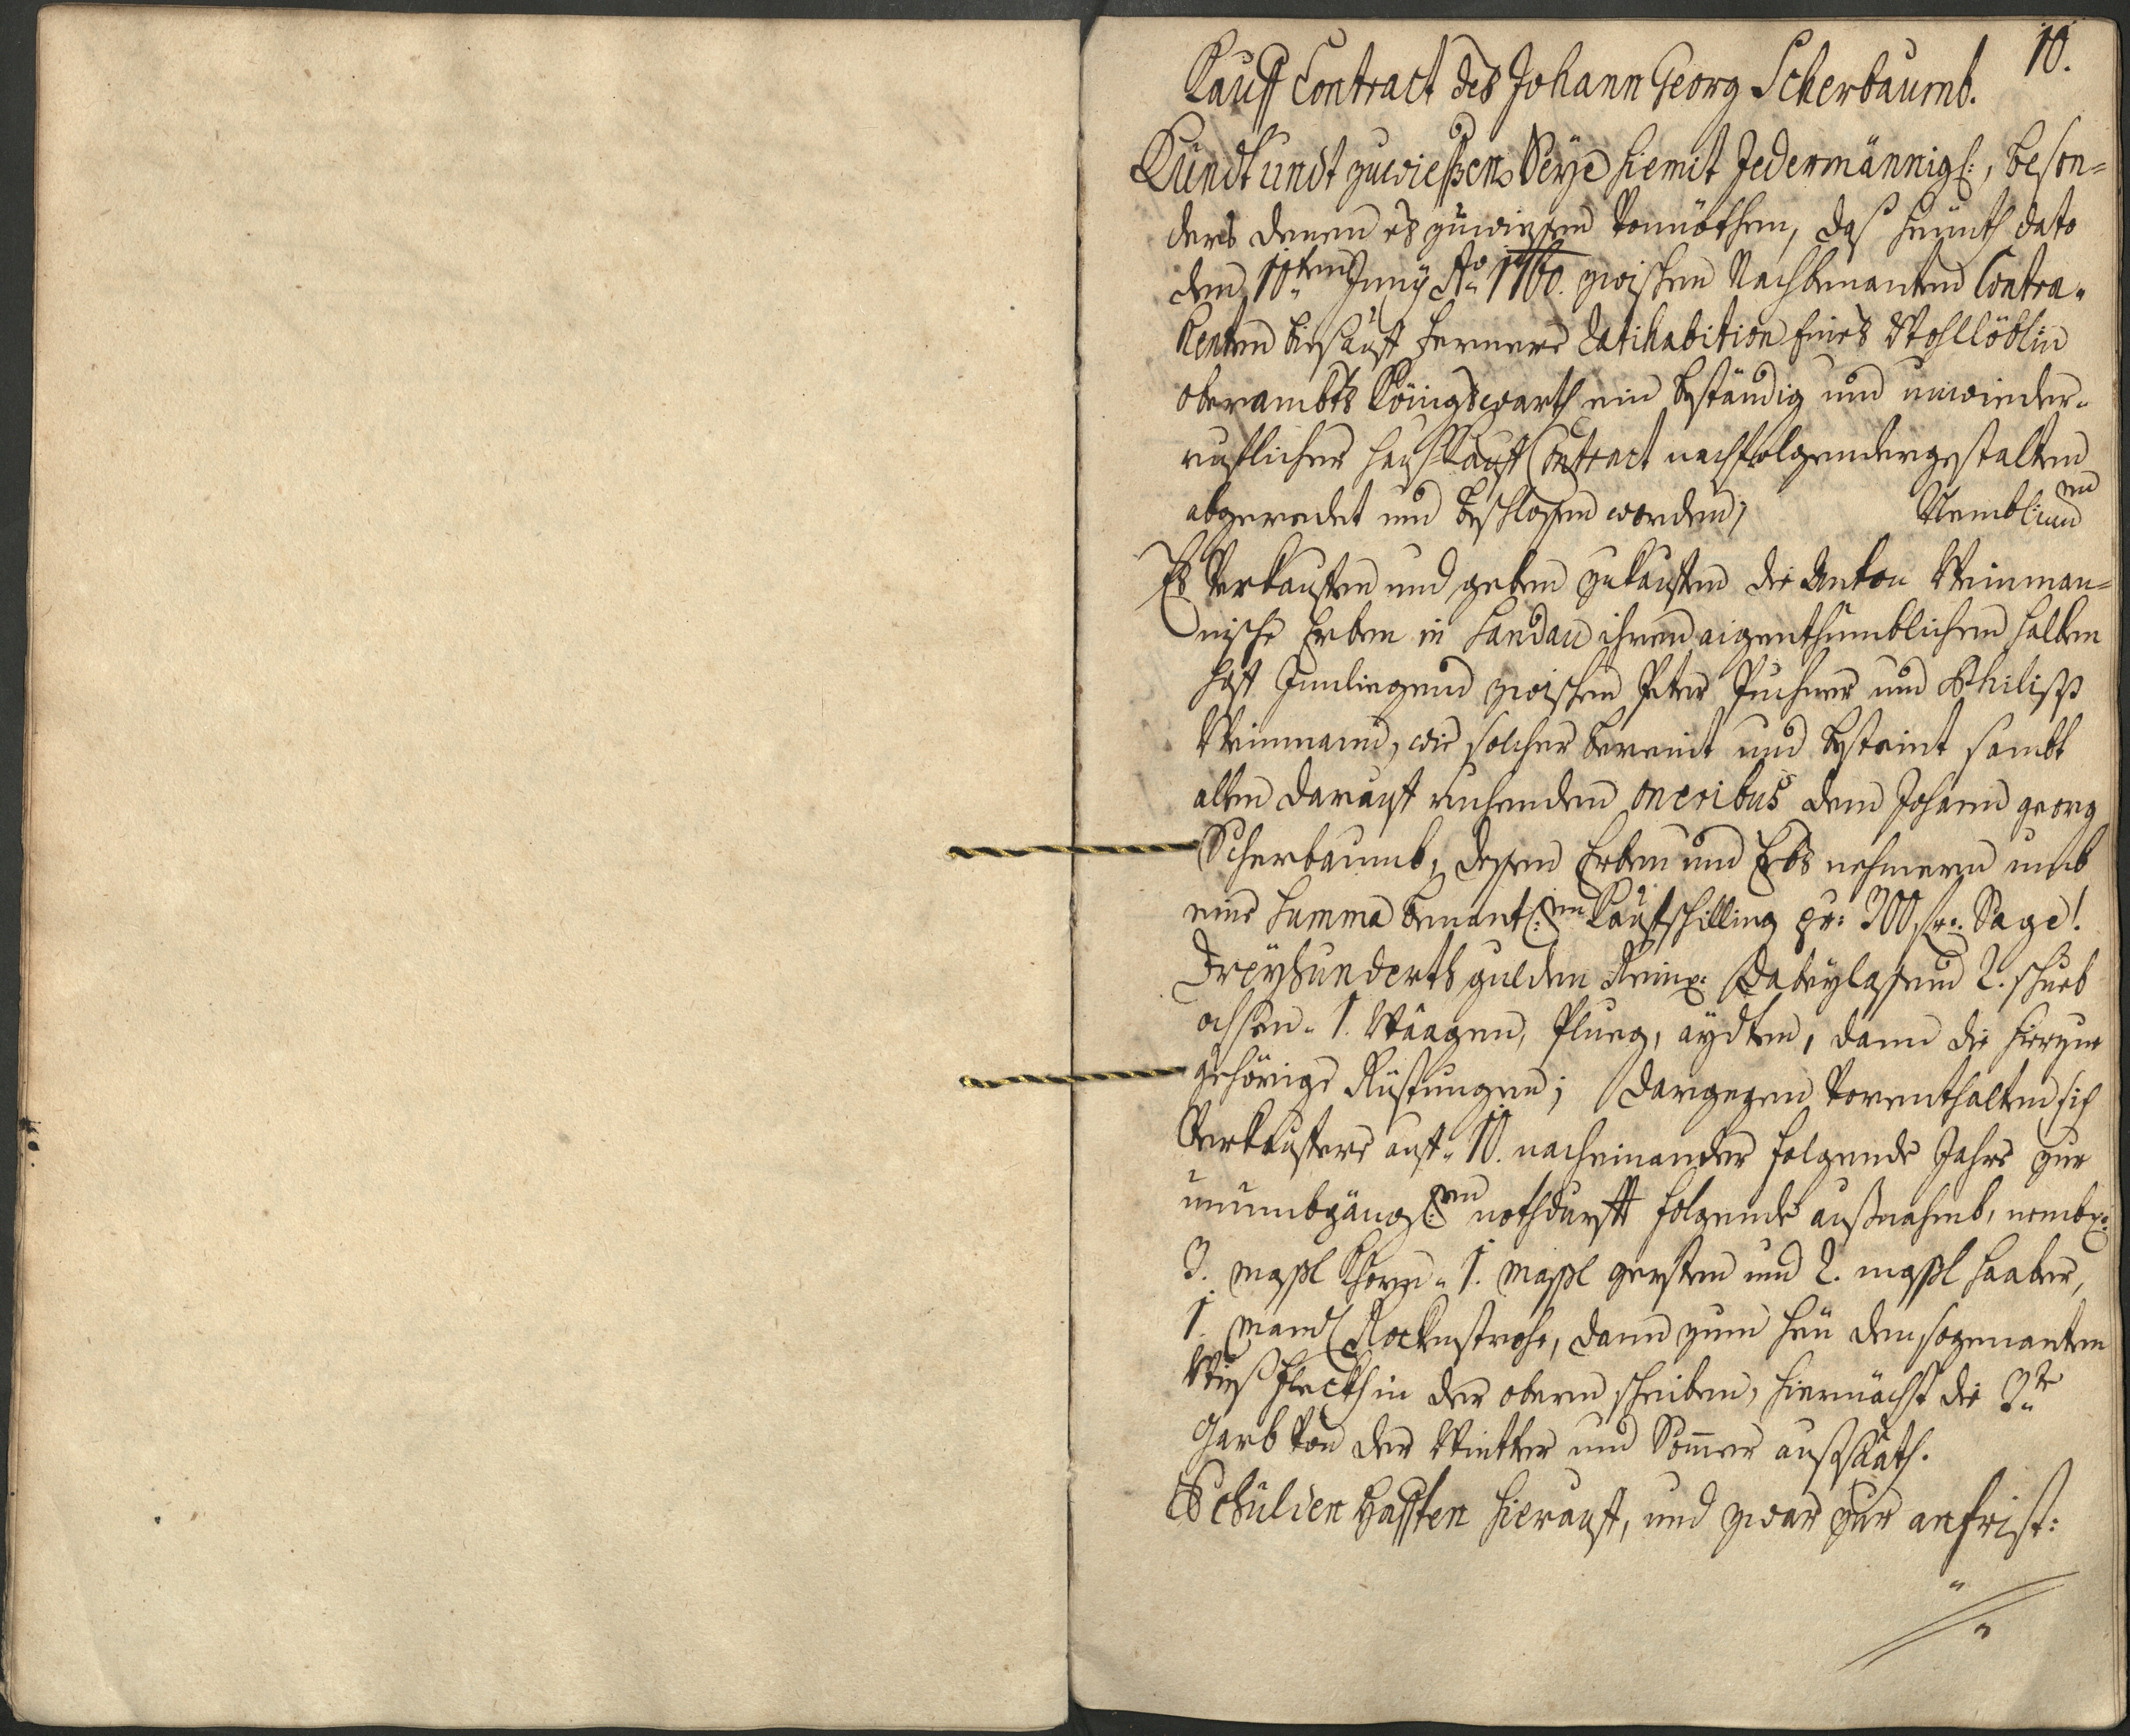 10.
Kauff Contract des Johann Georg Scherbaumb.
Kundt undt zuwießen Seÿe hiemit Jedermännigl:, beson=
ders denen es zuwissen vonnöthen, daß heünth dato
den 10ten Junÿ Ao 1760. zwischen Nachbenanten Contra=
henten bis auff fernere Ratihabition Eines Wohllöblen
oberambts Königswarth ein beständig und unwieder=
rufflicher Hauß Kauff Contract nachfolgendergestalten
abgeredet und beschlossen worden; Nembl:en
Es Verkauffen und geben zukauffen die Anton Weinman=
nische Erben in Sandau ihren aigenthumblichen halben
Hoff Innliegend zwischen Peter Puchner und Philipp
Weinmann, wie solcher bereint und besteint sambt
allen darauff ruhenden oneribus dem Johann georg
Scherbaumb, dessen Erben und Erbs nehmern umb
eine Summa benantl:en Kauffschilling pr: 300 fr: Sage!
Dreÿhunderth gulden Reinl: Dabeÿlassend 2. schueb
ochsen. 1. Waagen, Plueg, aÿdten, dann die hierzue
gehörige Rüstungen; Dargegen Vorenthalten sich
Verkauffere auff 10. nacheinander folgende Jahre zur
unumbgängl:en nothdurfft folgende außnahmb, nembl:
3. massl Khorn. 1. massl gersten und 2. massl Haaber,
1. Mandl Rockenstrohe, dann zum Heu den sogenanten
Wieß Fleckh in der obern scheiben, hiernächst die 3te
Garb Von der Wintter und Sommer außsaath.
Schulden Hafften hierauff, und zwar zur anfrist: